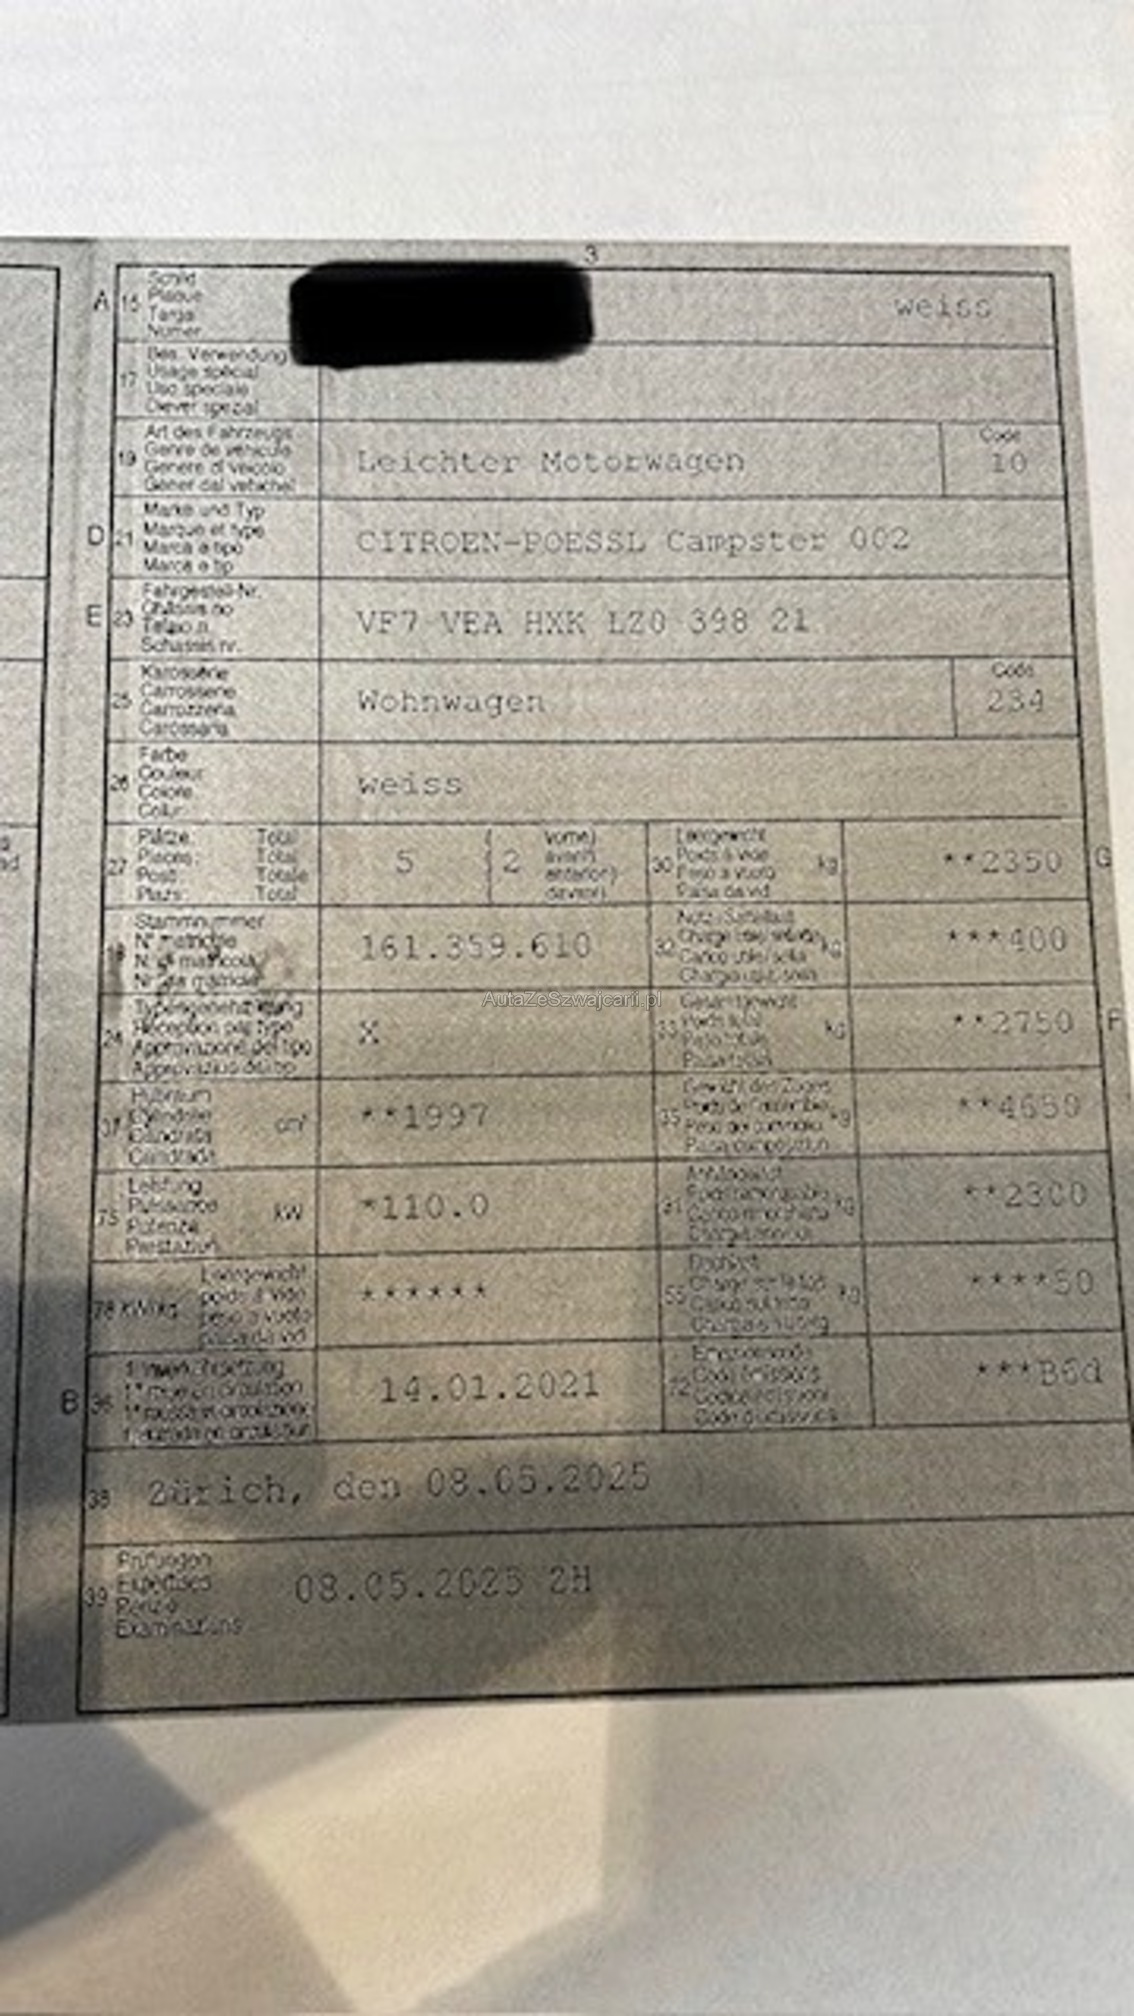 3
A 15 Schild
Plaque
Targa
Numer
weiss
17 Bes. Verwendung
Usage spécial
Uso speciale
Diever spezial
19 Art des Fahrzeugs
Genre de véhicule
Genere di veicolo
Gener dal vehichel
Leichter Motorwagen
Code
10
D 21 Marke und Typ
Marque et type
Marca e tipo
Marca e tip
CITROEN-POESSL Campster 002
E 23 Fahrgestell-Nr.
Châssis no
Telaio n.
Schassis nr.
VF7 VEA HXK LZ0 398 21
25 Karosserie
Carrosserie
Carrozzeria
Carossaria
Wohnwagen
Code
234
26 Farbe
Couleur
Colore
Colur
weiss
27 Plätze: Total
Places: Total
Posti: Totale
Plazs: Total
5 ( 2 vorne)
avant)
anteriori)
davant)
30 Leergewicht
Poids à vide
Peso a vuoto
Paisa da vid
kg
**2350 G
18 Stammnummer
N° matricule
N. di matricola
Nr. da matricla
161.359.610
32 kg
***400
24 Typengenehmigung
Réception par type
Approvazione del tipo
Approvaziun dal tip
X
33 Gesamtgewicht
Poids total
Peso totale
Paisa totala
kg
**2750 F
37 Hubraum
Cylindrée
Cilindrata
Cilindrada
cm³
**1997
35 Gewicht des Zuges
kg
**4650
76 Leistung
Puissance
Potenza
Prestaziun
kW
*110.0
31 Anhängelast
kg
**2300
78 kW/kg Leergewicht
poids à vide
peso a vuoto
paisa da vid
******
55 Dachlast
kg
****50
B 36 1. Inverkehrsetzung
1re mise en circulation
1a messa in circolazione
14.01.2021
72 Emissionscode
Code émissions
Codice emissioni
***B6d
38 Zürich, den 08.05.2025
39 Prüfungen
Expertises
Perizie
Examinaziuns
08.05.2025 ZH
AutaZeSzwajcarii.pl